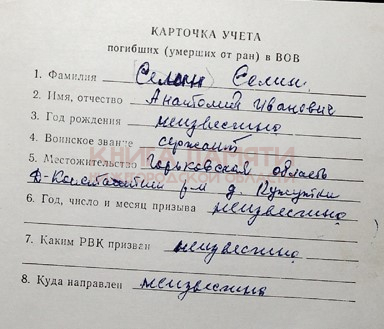 КАРТОЧКА УЧЕТА
погибших (умерших от ран) в ВОВ
1. Фамилия (Селин) Селин.
2. Имя, отчество Анатолий Иванович
3. Год рождения неизвестно
4. Воинское звание сержант
КНИГА ПАМЯТИ
НИЖЕГОРОДСКОЙ ОБЛАСТИ
5. Местожительство Горьковская область
Д-Константин р-н д.
6. Год, число и месяц призыва неизвестно
7. Каким РВК призван неизвестно
8. Куда направлен неизвестно